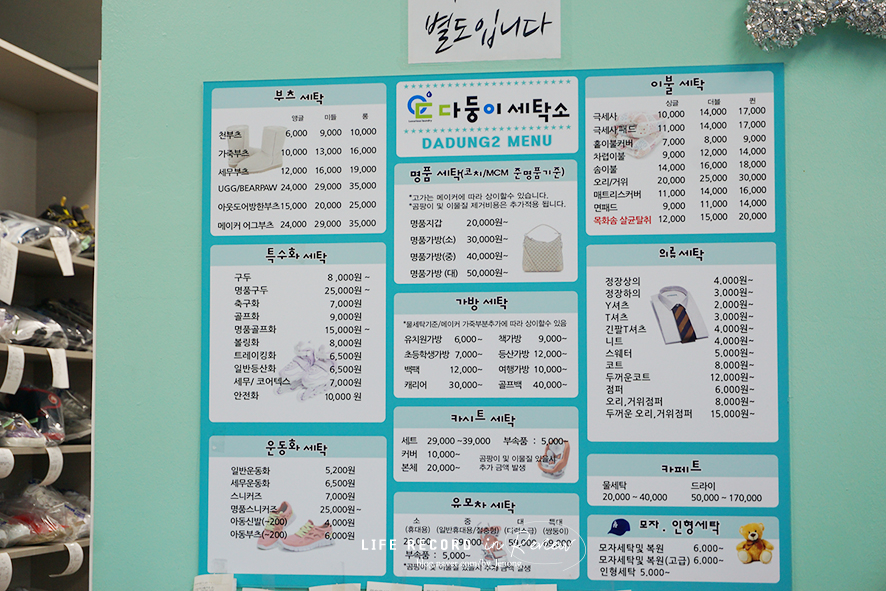 별도입니다
부츠 세탁
앵글 미들 롱
천부츠 6,000 9,000 10,000
가죽부츠 10,000 13,000 16,000
세무부츠 12,000 16,000 19,000
UGG/BEARPAW 24,000 29,000 35,000
아웃도어방한부츠 15,000 20,000 25,000
메이커 어그부츠 24,000 29,000 35,000
특수화 세탁
구두 8,000원~
명품구두 25,000원~
축구화 7,000원
골프화 9,000원
명품골프화 15,000원~
볼링화 8,000원
트레이킹화 6,500원
일반등산화 6,500원
세무/ 코어텍스 7,000원
안전화 10,000 원
운동화 세탁
일반운동화 5,200원
세무운동화 6,500원
스니커즈 7,000원
명품스니커즈 25,000원~
아동신발(~200) 4,000원
아동부츠(~200) 6,000원
다둥이 세탁소
DADUNG2 MENU
명품 세탁(코치/MCM 준명품기준)
*고가는 메이커에 따라 상이할수 있습니다.
*곰팡이 및 이물질 제거비용은 추가적용 됩니다.
명품지갑 20,000원~
명품가방(소) 30,000원~
명품가방(중) 40,000원~
명품가방 (대) 50,000원~
가방 세탁
*물세탁기준/메이커 가죽부분추가에 따라 상이할수 있음
유치원가방 6,000~ 책가방 9,000~
초등학생가방 7,000~ 등산가방 12,000~
백팩 12,000~ 여행가방 10,000~
캐리어 30,000~ 골프백 40,000~
카시트 세탁
세트 29,000~39,000 부속품 : 5,000~
커버 10,000~ 곰팡이 및 이물질 있을시
본체 20,000~ 추가 금액 발생
유모차 세탁
소 중 대 특대
(휴대용) (일반휴대용/절충형) (디럭스급) (쌍둥이)
59,000 69,000
부속품 : 5,000~
*곰팡이 및 이물질 있을시 추가 금액 발생
이불 세탁
싱글 더블 퀸
극세사 10,000 14,000 17,000
극세사 패드 11,000 14,000 17,000
홑이불커버 7,000 8,000 9,000
차렵이불 9,000 12,000 14,000
솜이불 14,000 16,000 18,000
오리/거위 20,000 25,000 30,000
매트리스커버 11,000 14,000 16,000
면패드 9,000 11,000 14,000
목화솜 살균탈취 12,000 15,000 20,000
의류 세탁
정장상의 4,000원~
정장하의 3,000원~
Y셔츠 2,000원~
T셔츠 3,000원~
긴팔T셔츠 4,000원~
니트 4,000원~
스웨터 5,000원~
코트 8,000원~
두꺼운코트 12,000원~
점퍼 6,000원~
오리,거위점퍼 8,000원~
두꺼운 오리,거위점퍼 15,000원~
카페트
물세탁 드라이
20,000 ~ 40,000 50,000 ~ 170,000
모자 . 인형세탁
모자세탁및 복원 6,000~
모자세탁및 복원(고급) 6,000~
인형세탁 5,000~
LIFE RECORD in Renew